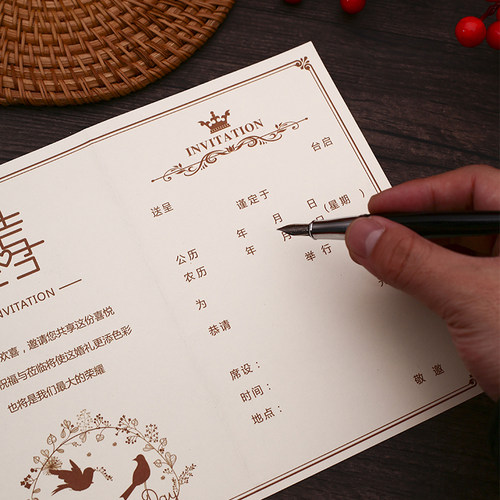 INVITATION
台启
送呈 谨定于
公历 年 月 日(星期 )
农历 年 月
为 举行
恭请
席设：
时间：
地点：
敬邀
囍
NVITATION
欢喜，邀请您共享这份喜悦
祝福与莅临将使这婚礼更添色彩
也将是我们最大的荣耀
Day